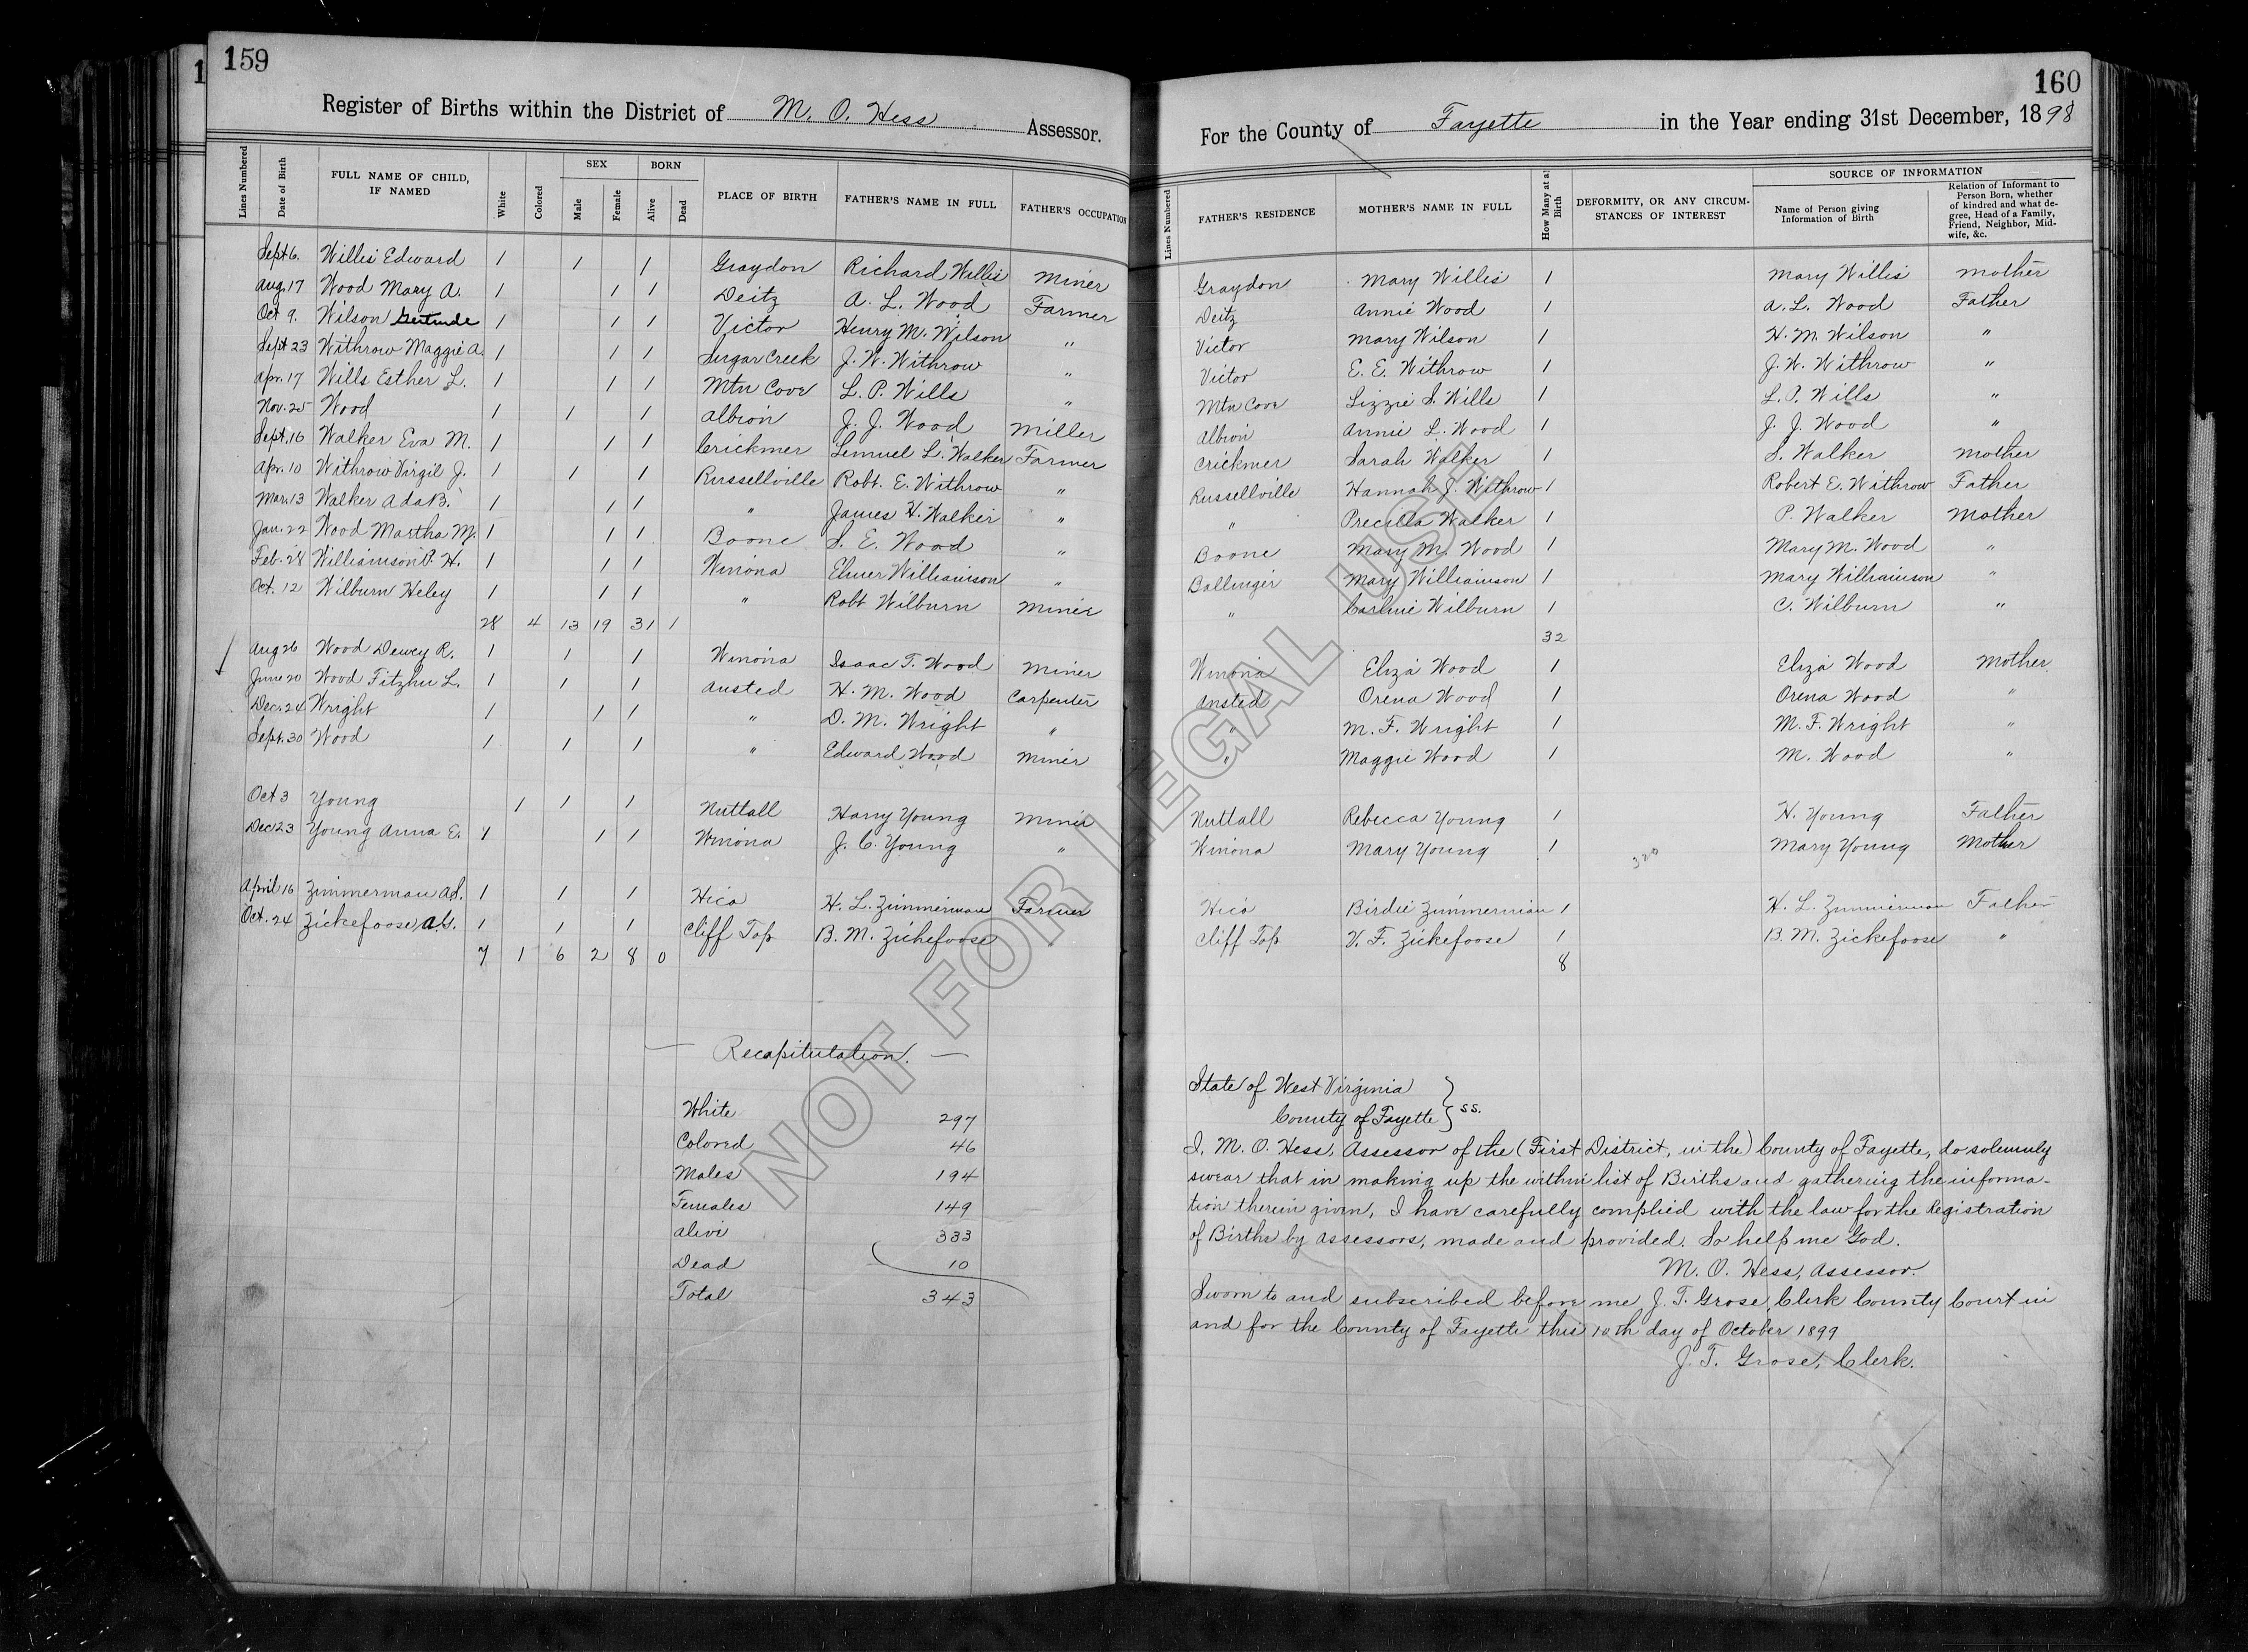 159
1
Register of Births within the District of M. O. Hess Assessor.
Lines Numbered
Date of Birth
FULL NAME OF CHILD, IF NAMED
White
Colored
SEX
Male
Female
BORN
Alive
Dead
PLACE OF BIRTH
FATHER'S NAME IN FULL
FATHER'S OCCUPATION
Sept 6. Willis Edward 1 1 1 Graydon Richard Willis Miner
Aug. 17 Wood Mary A. 1 1 1 Deitz A. L. Wood Farmer
Oct 9. Wilson Gertrude 1 1 1 Victor Henry M. Wilson "
Sept 23 Withrow Maggie A. 1 1 1 Sugar Creek J. W. Withrow "
Apr. 17 Wills Esther L. 1 1 1 Mtn Cove L. P. Wills "
Nov. 25 Wood 1 1 1 Albion J. J. Wood Miller
Sept. 16 Walker Eva M. 1 1 1 Crickmer Lemuel L. Walker Farmer
Apr. 10 Withrow Virgil J. 1 1 1 Russellville Robt. E. Withrow "
Mar. 13 Walker Ada B. 1 1 1 " James H. Walker "
Jan. 22 Wood Martha M. 1 1 1 Boone S. E. Wood "
Feb. 28 Williamson P. H. 1 1 1 Winona Elmer Williamson "
Oct. 12 Wilburn Heley 1 1 1 " Robt Wilburn Miner
28 4 13 19 31 1
Aug 26 Wood Dewey R. 1 1 1 Winona Isaac T. Wood Miner
June 20 Wood Fitzhu L. 1 1 1 Ansted H. M. Wood Carpenter
Dec. 24 Wright 1 1 1 " D. M. Wright "
Sept. 30 Wood 1 1 1 " Edward Wood Miner
Oct 3 Young 1 1 1 Nuttall Harry Young Miner
Dec 23 Young Anna E. 1 1 1 Winona J. C. Young "
April 16 Zimmerman A.S. 1 1 1 Hico H. L. Zimmerman Farmer
Oct. 24 Zickefoose, A.G. 1 1 1 Cliff Top B. M. Zickefoose
7 1 6 2 8 0
Recapitulation.
White 297
Colored 46
Males 194
Females 149
Alive 333
Dead 10
Total 343
160
For the County of Fayette in the Year ending 31st December, 1898
Lines Numbered
FATHER'S RESIDENCE
MOTHER'S NAME IN FULL
How Many at a Birth
DEFORMITY, OR ANY CIRCUM-
STANCES OF INTEREST
SOURCE OF INFORMATION
Name of Person giving
Information of Birth
Relation of Informant to
Person Born, whether
of kindred and what de-
gree, Head of a Family,
Friend, Neighbor, Mid-
wife, &c.
Graydon Mary Willis 1 Mary Willis Mother
Deitz Annie Wood 1 A. L. Wood Father
Victor Mary Wilson 1 H. M. Wilson "
Victor E. E. Withrow 1 J. W. Withrow "
Mtn Cove Lizzie S. Wills 1 L. P. Wills "
Albion Annie L. Wood 1 J. J. Wood "
Crickmer Sarah Walker 1 S. Walker Mother
Russellville Hannah J. Withrow 1 Robert E. Withrow Father
" Precilla Walker 1 P. Walker Mother
Boone Mary M. Wood 1 Mary M. Wood "
Ballinger Mary Williamson 1 Mary Williamson "
" Carline Wilburn 1 C. Wilburn "
32
Winona Eliza Wood 1 Eliza Wood Mother
Ansted Orena Wood 1 Orena Wood "
" M. F. Wright 1 M. F. Wright "
" Maggie Wood 1 M. Wood "
Nuttall Rebecca Young 1 H. Young Father
Winona Mary Young 1 320 Mary Young Mother
Hico Birdie Zimmerman 1 H. L. Zimmerman Father
Cliff Top V. F. Zickefoose 1 B. M. Zickefoose "
8
State of West Virginia
County of Fayette } ss.
I, M. O. Hess, Assessor of the (First District, in the) County of Fayette, do solemnly
swear that in making up the within list of Births and gathering the informa-
tion therein given, I have carefully complied with the law for the Registration
of Births by Assessors, made and provided. So help me God.
M. O. Hess, Assessor.
Sworn to and subscribed before me J. T. Grose, Clerk County Court in
and for the County of Fayette this 10th day of October 1899
J. T. Grose, Clerk.
NOT FOR LEGAL USE